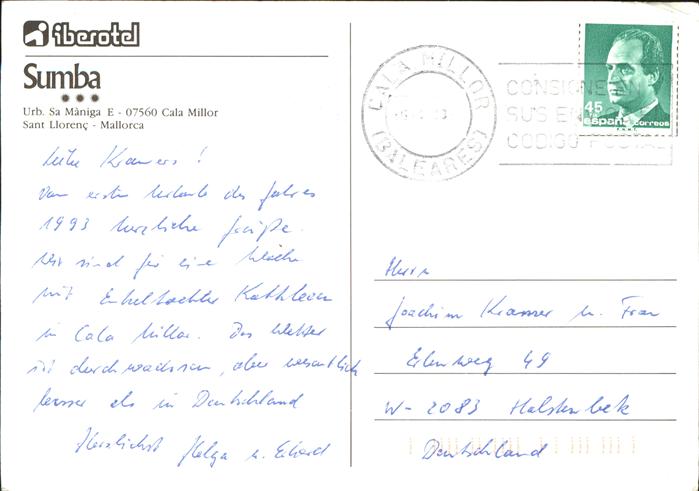 iberotel
Sumba
Urb. Sa Màniga E - 07560 Cala Millor
Sant Llorenç - Mallorca
CALA MILLOR
(BALEARES)
CONSIGNE
SUS EN
CODIGO POSTAL
45
España correos
Liebe Kramers!
Vom ersten Urlaub des Jahres
1993 herzliche Grüße.
Wir sind für eine Woche
mit Enkeltochter Kathleen
in Cala Millor. Das Wetter
ist durchwachsen, aber wesentlich
besser als in Deutschland
Herzlichst Helga u. Eckard
Herrn
Joachim Kramer u. Frau
Erlenweg 49
W-2083 Halstenbek
Deutschland